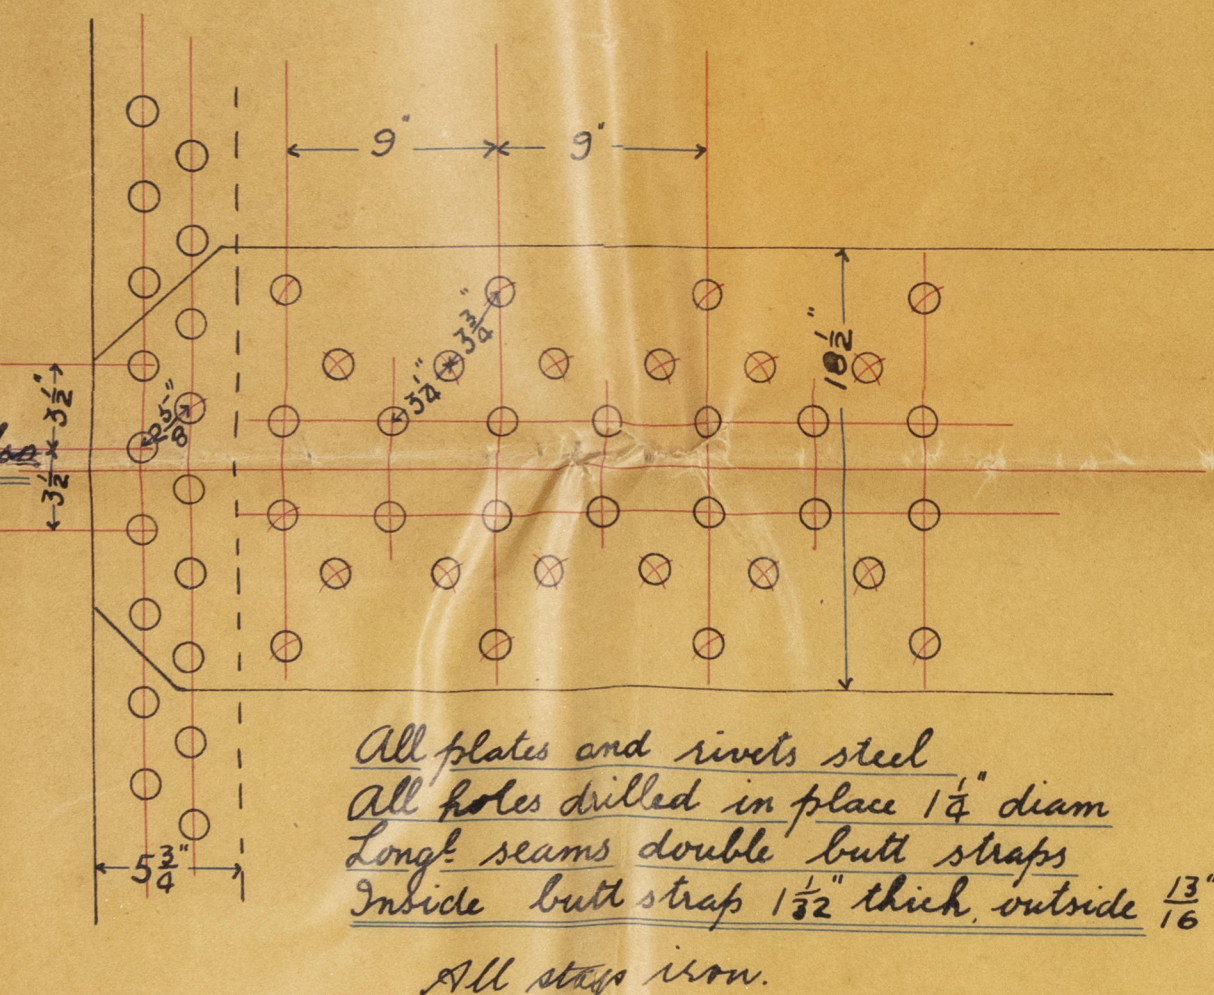 9" 9"
3 3/4"
18 1/2"
3 1/2"
3 1/4"
2 5/8"
3 1/2"
All plates and rivets steel
All holes drilled in place 1 1/4" diam
5 3/4"
Longl. seams double butt straps
Inside butt strap 1 1/32" thick, outside 13/16"
All stays iron.